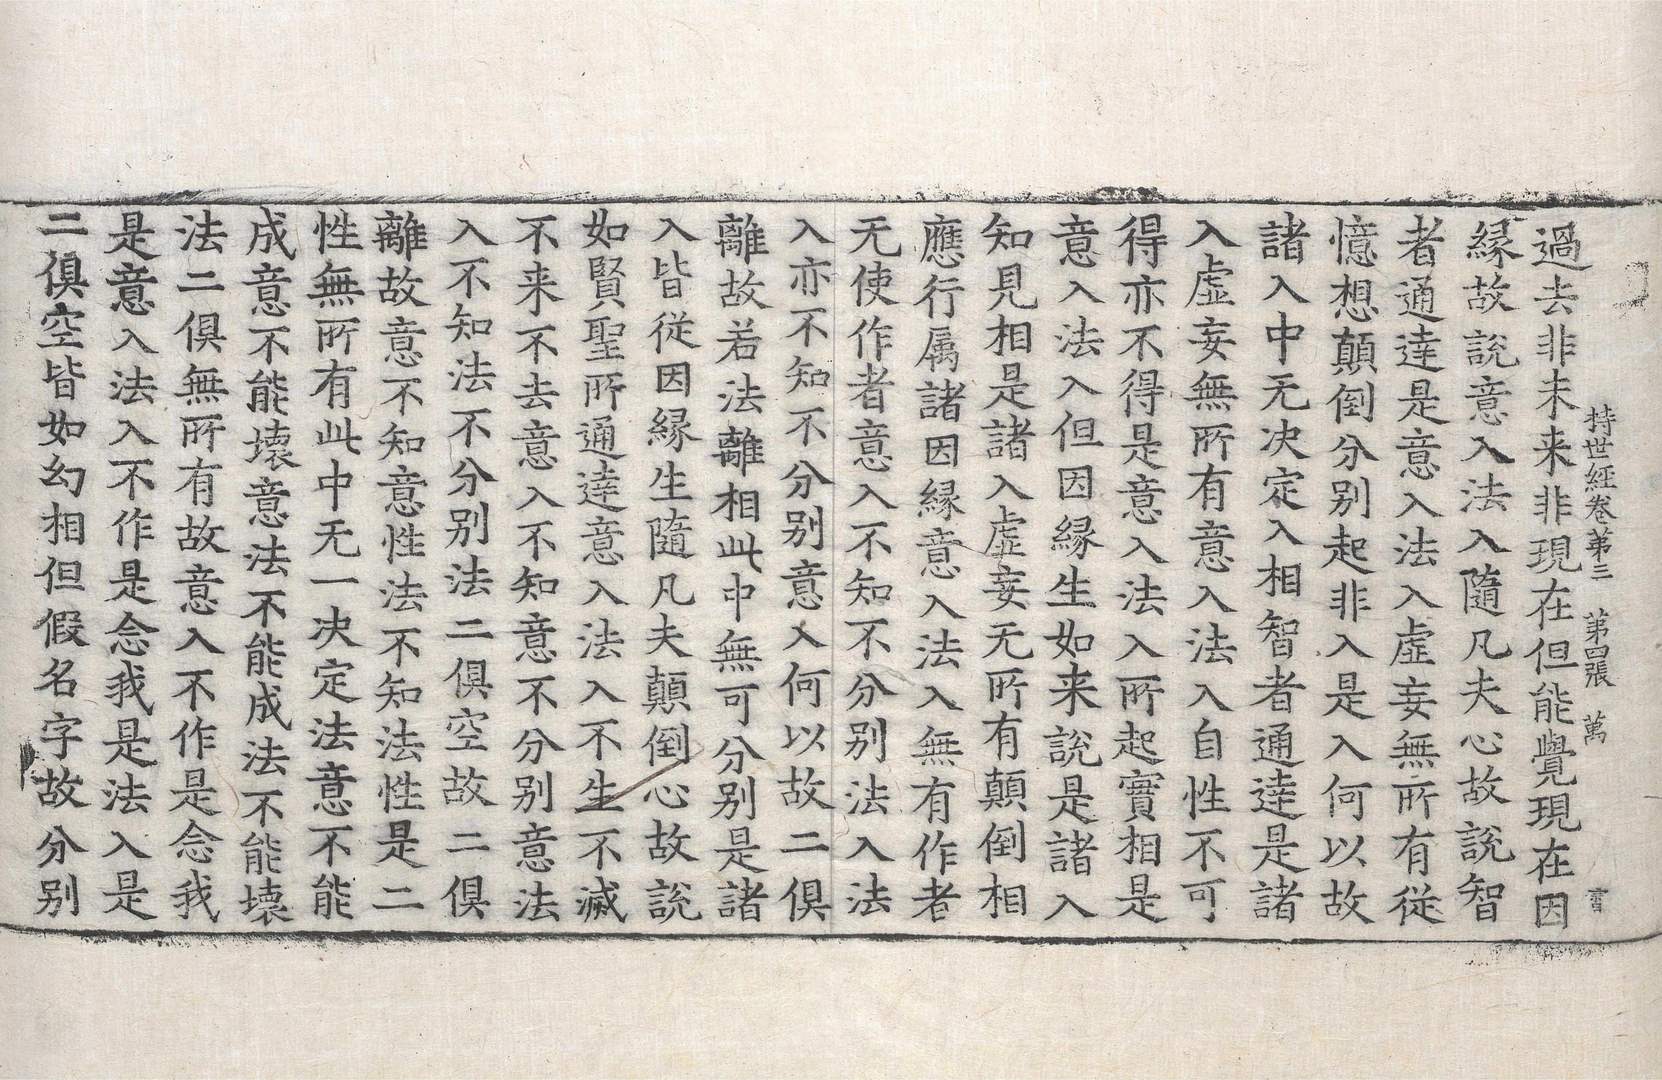 持世經卷第三　第四張　萬
過去非未来非現在但能覺現在因
緣故說意入法入隨凡夫心故說智
者通達是意入法入虛妄無所有從
憶想顛倒分别起非入是入何以故
諸入中无决定入相智者通達是諸
入虛妄無所有意入法入自性不可
得亦不得是意入法入所起實相是
意入法入但因緣生如来說是諸入
知見相是諸入虛妄无所有顛倒相
應行属諸因緣意入法入無有作者
无使作者意入不知不分别法入法
入亦不知不分别意入何以故二俱
離故若法離相此中無可分别是諸
入皆從因緣生隨凡夫顛倒心故說
如賢聖所通達意入法入不生不滅
不来不去意入不知意不分别意法
入不知法不分别法二俱空故二俱
離故意不知意性法不知法性是二
性無所有此中无一决定法意不能
成意不能壞意法不能成法不能壞
法二俱無所有故意入不作是念我
是意入法入不作是念我是法入是
二俱空皆如幻相但假名字故分别